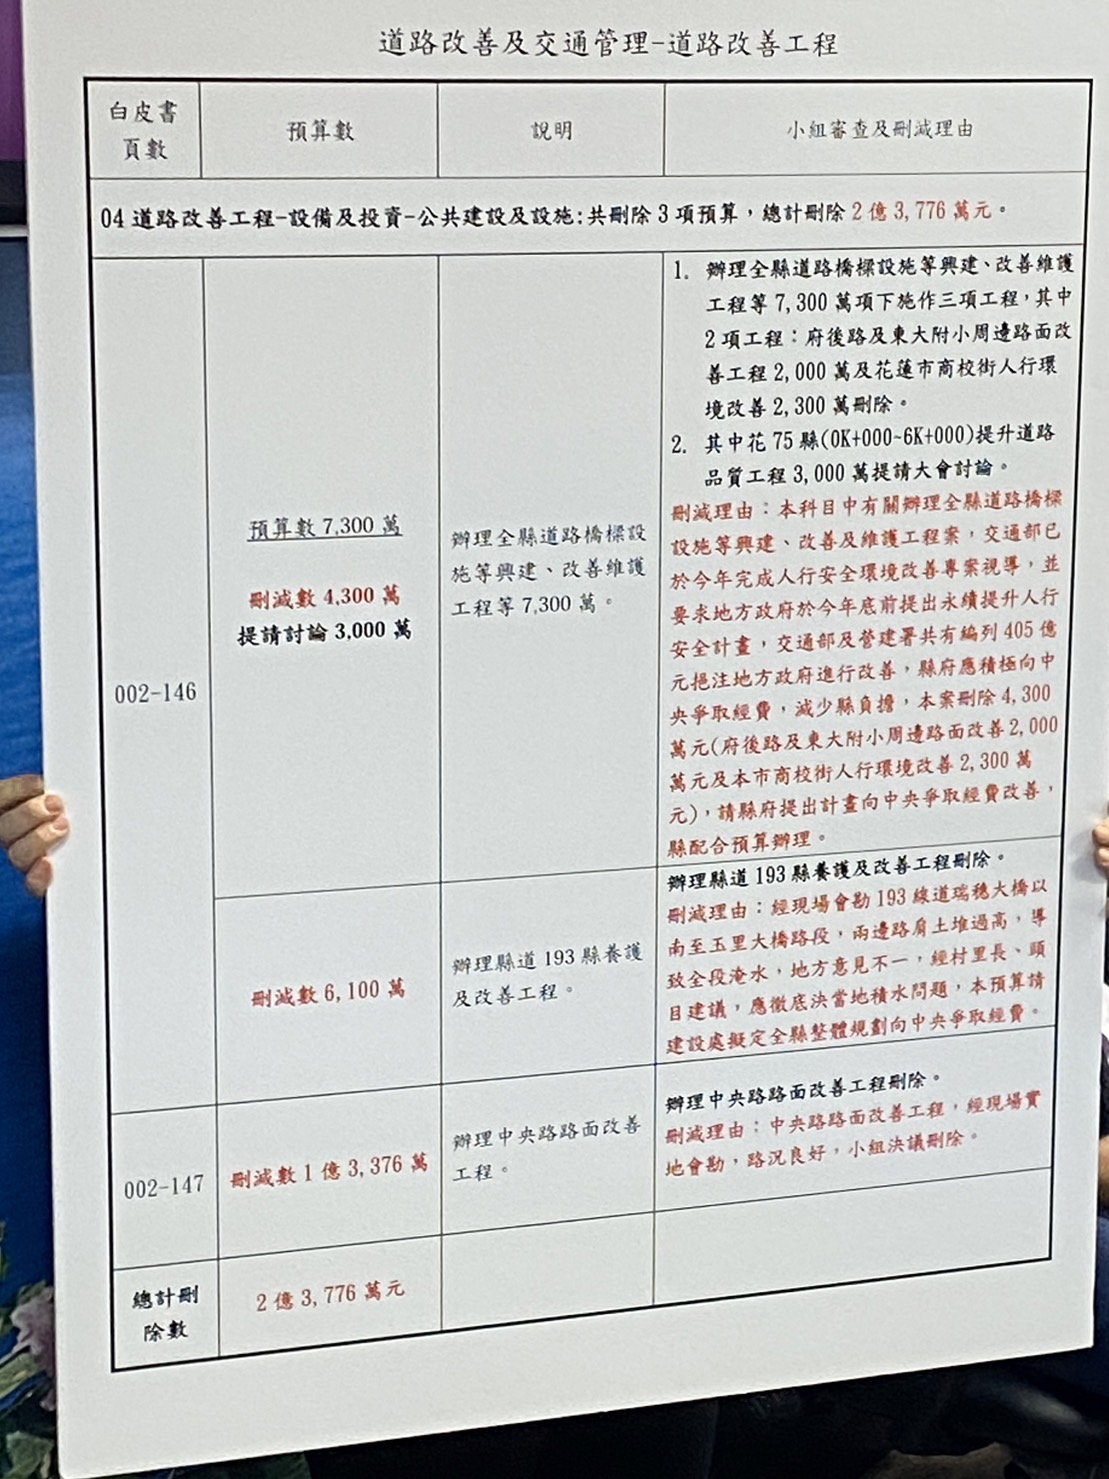 道路改善及交通管理-道路改善工程
白皮書
頁數
預算數
說明
小組審查及刪減理由
04 道路改善工程-設備及投資-公共建設及設施:共刪除 3 項預算，總計刪除 2 億 3,776 萬元。
002-146
預算數 7,300 萬
刪減數 4,300 萬
提請討論 3,000 萬
辦理全縣道路橋樑設
施等興建、改善維護
工程等 7,300 萬。
1. 辦理全縣道路橋樑設施等興建、改善維護
工程等 7,300 萬項下施作三項工程，其中
2 項工程：府後路及東大附小周邊路面改
善工程 2,000 萬及花蓮市商校街人行環
境改善 2,300 萬刪除。
2. 其中花 75 縣(0K+000~6K+000)提升道路
品質工程 3,000 萬提請大會討論。
刪減理由：本科目中有關辦理全縣道路橋樑
設施等興建、改善及維護工程案，交通部已
於今年完成人行安全環境改善專案視導，並
要求地方政府於今年底前提出永續提升人行
安全計畫，交通部及營建署共有編列 405 億
元挹注地方政府進行改善，縣府應積極向中
央爭取經費，減少縣負擔，本案刪除 4,300
萬元(府後路及東大附小周邊路面改善 2,000
萬元及本市商校街人行環境改善 2,300 萬
元)，請縣府提出計畫向中央爭取經費改善，
縣配合預算辦理。
刪減數 6,100 萬
辦理縣道 193 縣養護
及改善工程。
辦理縣道 193 縣養護及改善工程刪除。
刪減理由：經現場會勘 193 線道瑞穗大橋以
南至玉里大橋路段，兩邊路肩土堆過高，導
致全段淹水，地方意見不一，經村里長、頭
目建議，應徹底決當地積水問題，本預算請
建設處擬定全縣整體規劃向中央爭取經費。
002-147
刪減數 1 億 3,376 萬
辦理中央路路面改善
工程。
辦理中央路路面改善工程刪除。
刪減理由：中央路路面改善工程，經現場實
地會勘，路況良好，小組決議刪除。
總計刪
除數
2 億 3,776 萬元